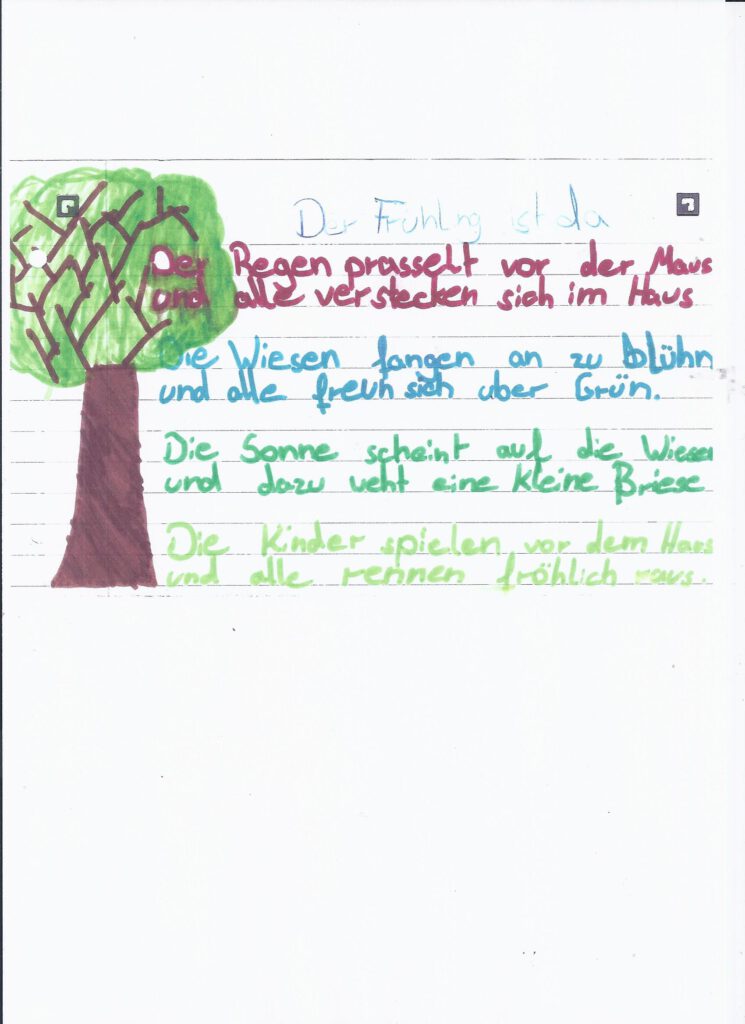 Der Frühling ist da
Der Regen prasselt vor der Maus
und alle verstecken sich im Haus
Die Wiesen fangen an zu blühn
und alle freun sich über Grün.
Die Sonne scheint auf die Wiese
und dazu veht eine kleine Briese
Die Kinder spielen vor dem Haus
und alle rennen fröhlich raus.